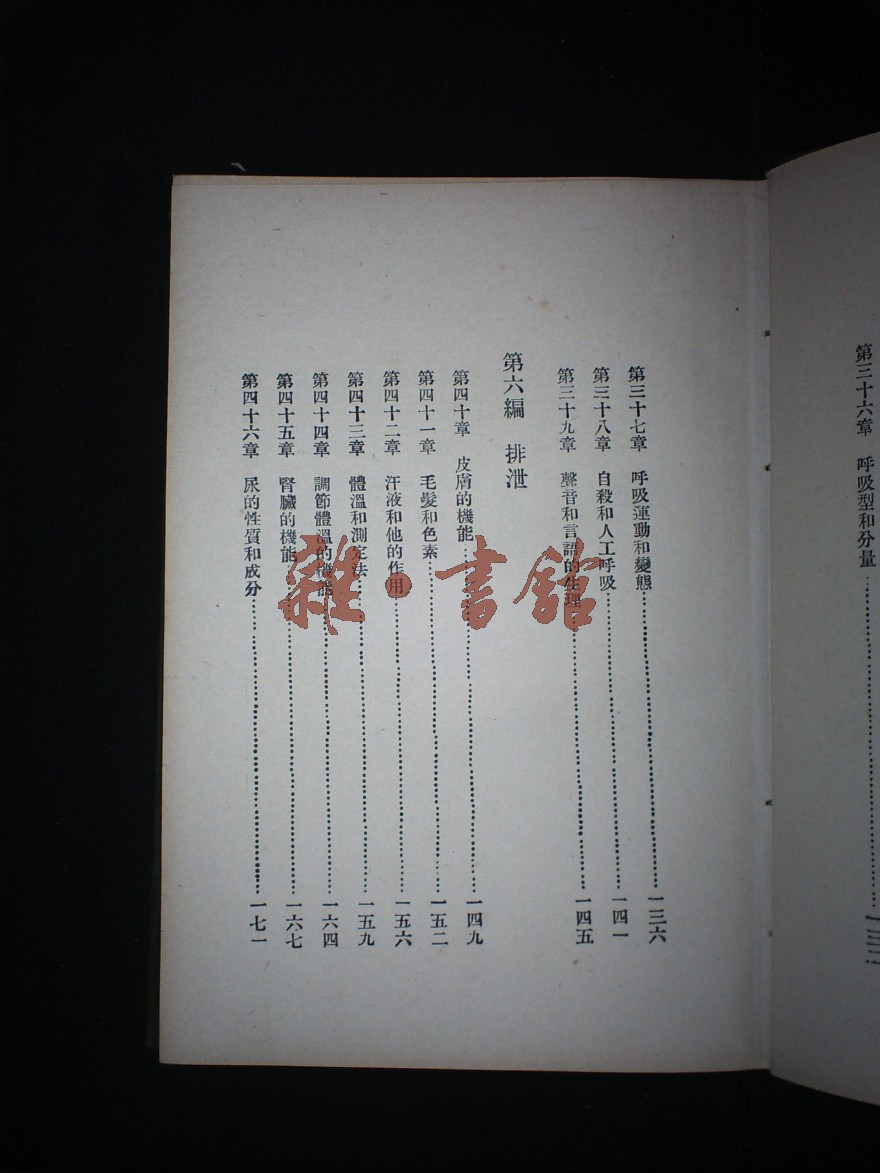 第三十六章　呼吸型和分量
第三十七章　呼吸運動和變態……一三六
第三十八章　自殺和人工呼吸……一四一
第三十九章　聲音和言語的生理……一四五
第六編　排泄
第四十章　皮膚的機能……一四九
第四十一章　毛髮和色素……一五二
第四十二章　汗液和他的作用……一五六
第四十三章　體溫和測定法……一五九
第四十四章　調節體溫的機能……一六四
第四十五章　腎臟的機能……一六七
第四十六章　尿的性質和成分……一七一
雜·書館